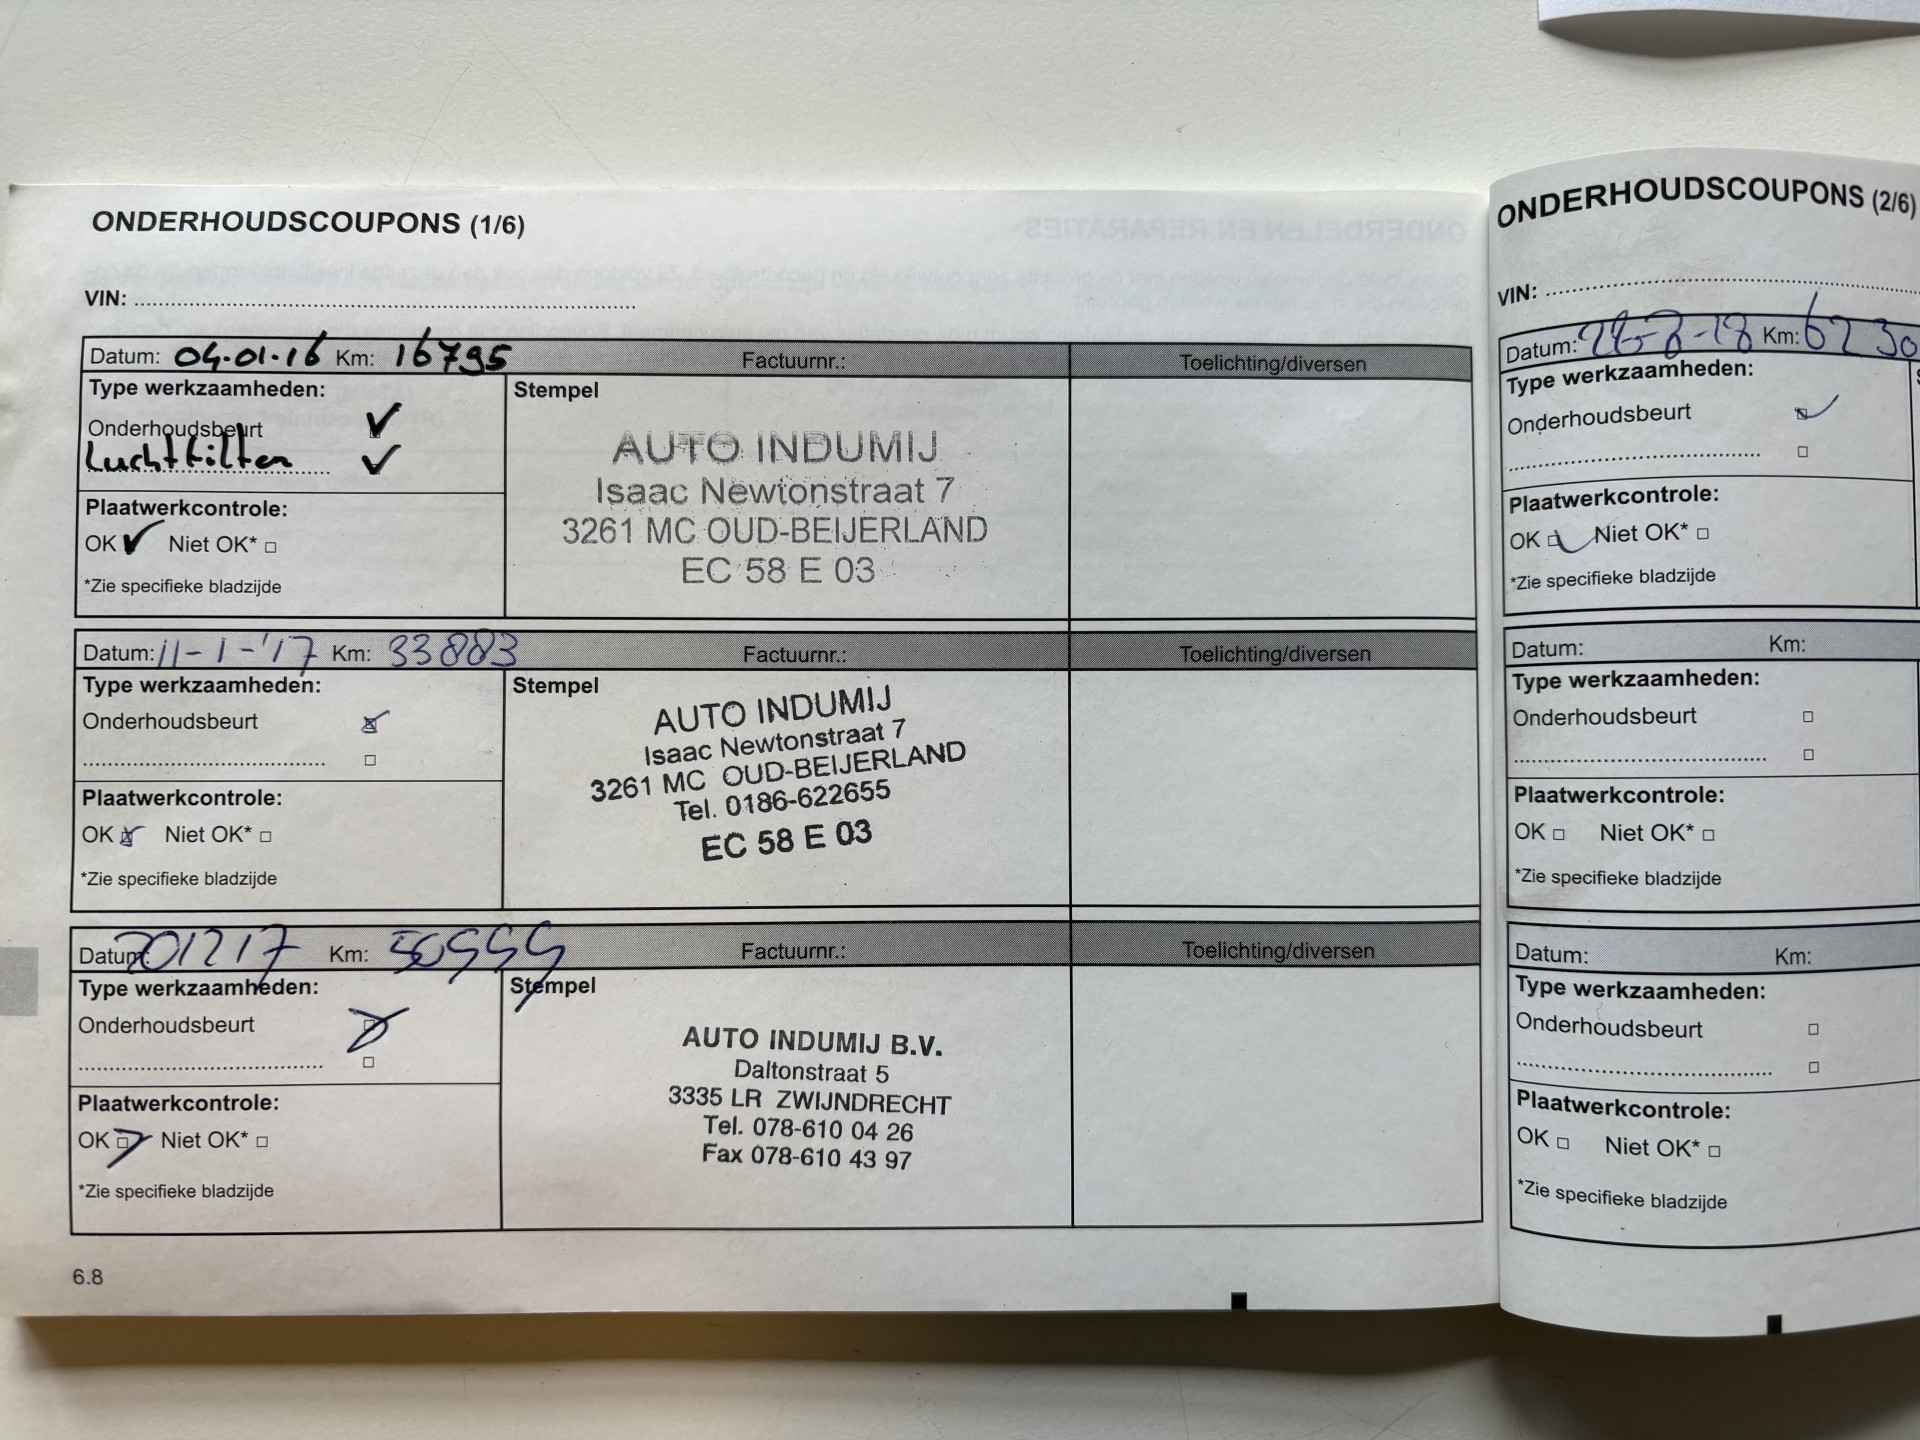 ONDERHOUDSCOUPONS (1/6)
VIN:
Datum: 04-01-16 Km: 16795 Factuurnr.: Toelichting/diversen
Type werkzaamheden:
Stempel
Onderhoudsbeurt
Luchtfilter
Plaatwerkcontrole:
OK Niet OK*
*Zie specifieke bladzijde
AUTO INDUMIJ
Isaac Newtonstraat 7
3261 MC OUD-BEIJERLAND
EC 58 E 03
Datum: 11-1-'17 Km: 33883 Factuurnr.: Toelichting/diversen
Type werkzaamheden:
Stempel
Onderhoudsbeurt
Plaatwerkcontrole:
OK Niet OK*
*Zie specifieke bladzijde
AUTO INDUMIJ
Isaac Newtonstraat 7
3261 MC OUD-BEIJERLAND
Tel. 0186-622655
EC 58 E 03
Datum: 201217 Km: 50999 Factuurnr.: Toelichting/diversen
Type werkzaamheden:
Stempel
Onderhoudsbeurt
Plaatwerkcontrole:
OK Niet OK*
*Zie specifieke bladzijde
AUTO INDUMIJ B.V.
Daltonstraat 5
3335 LR ZWIJNDRECHT
Tel. 078-610 04 26
Fax 078-610 43 97
6.8
ONDERHOUDSCOUPONS (2/6)
VIN:
Datum: Km: 6230
Type werkzaamheden:
Onderhoudsbeurt
Plaatwerkcontrole:
OK Niet OK*
*Zie specifieke bladzijde
Datum: Km:
Type werkzaamheden:
Onderhoudsbeurt
Plaatwerkcontrole:
OK Niet OK*
*Zie specifieke bladzijde
Datum: Km:
Type werkzaamheden:
Onderhoudsbeurt
Plaatwerkcontrole:
OK Niet OK*
*Zie specifieke bladzijde